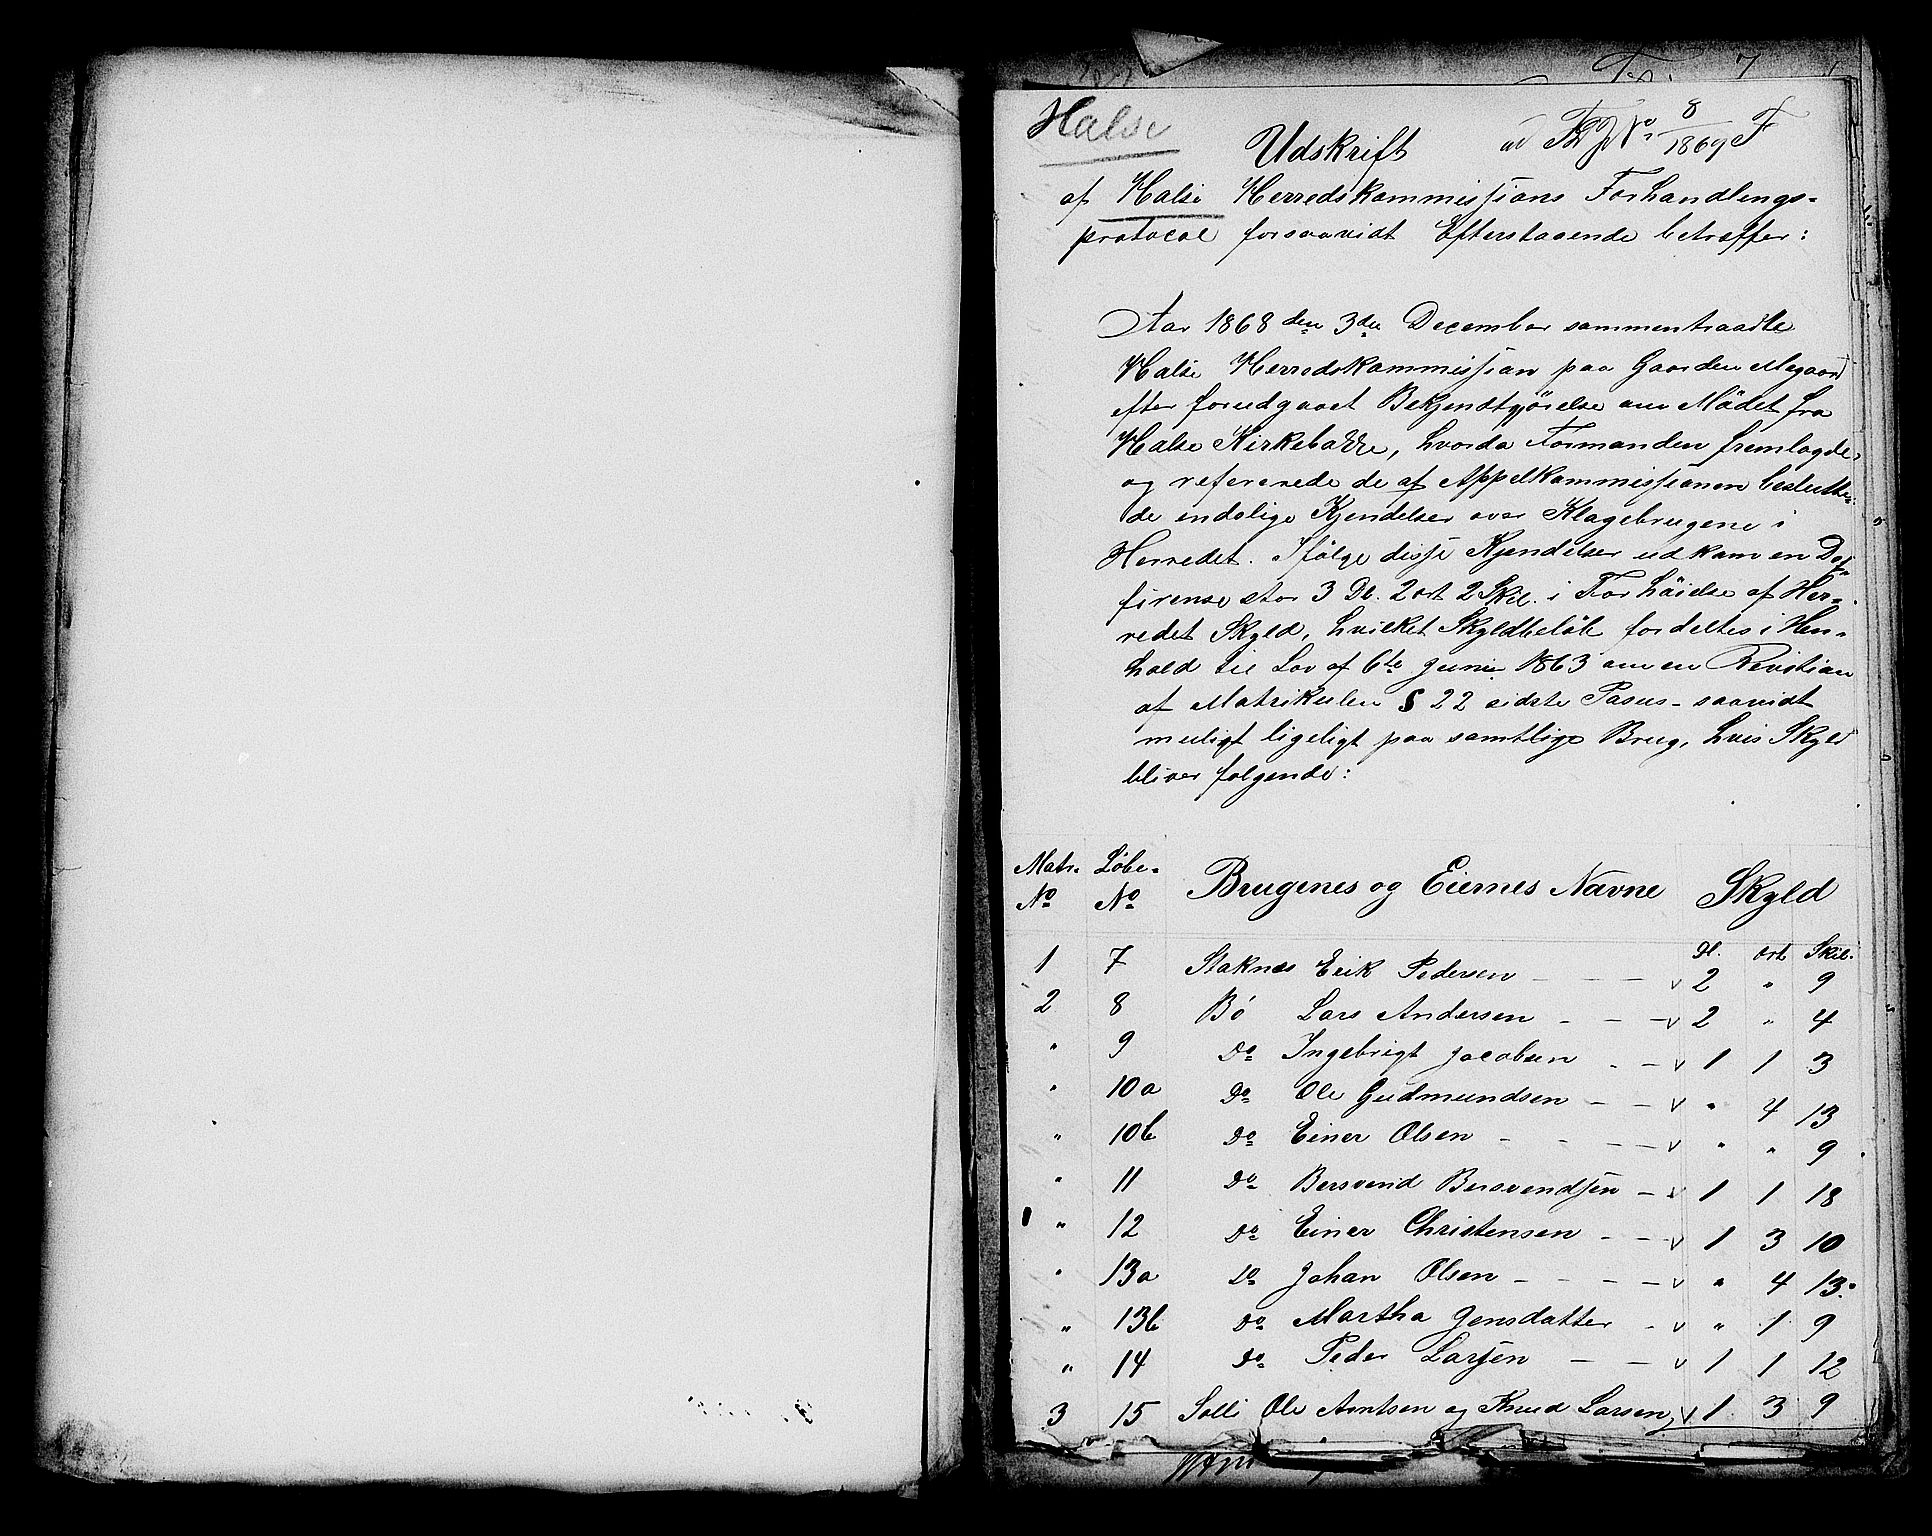 Halse
Udskrift
ad No 8/1869 F
af Halse Herredskommissions Forhandlings-
protocol forsaavidt Efterstaaende betræffer:
Aar 1868 den 3die December sammentraadte
Halse Herredskommission paa Gaarden Megaard
efter forudgaaet Bekjendtgjörelse om Mödet fra
Halse Kirkebakke, hvorda Formanden fremlagde
og refererede de af Appelkommissionen beslutte-
de endelige Kjendelser over Klagebrugene i
Herredet. Ifölge disse Kjendelser udkom en Def-
firense stor 3 Dl. 2 ort 2 Skil. i Forhöielse af Her-
redet Skyld, hvilket Skyldbelöb fordeltes i Hen-
hold til Lov af 6te Juni 1863 om en Revision
af Matrikulen § 22 sidste Pasus - saavidt
muligt ligeligt paa samtlige Brug, hvis Skyld
bliver følgende:
Matr. Löbe- Brugenes og Eiernes Navne Skyld
No No
Dl. ort Skil.
1 7 Staknes Erik Pedersen - - - v 2 " 9
2 8 Bö Lars Andersen - - - v 2 " 4
" 9 Do Ingebrigt Jacobsen - - v 1 1 3
" 10a Do Ole Gudmundsen - - v " 4 13
" 10b Do Einer Olsen - - - v " " 9
" 11 Do Bersvend Bersvendsen - v 1 1 18
" 12 Do Einer Christensen - - v 1 3 10
" 13a Do Johan Olsen - - - - v " 4 13
" 13b Do Martha Jensdatter - v " 1 9
" 14 Do Peder Larsen - - v 1 1 12
3 15 Solli Ole Arntsen og Knud Larsen, v 1 3 9